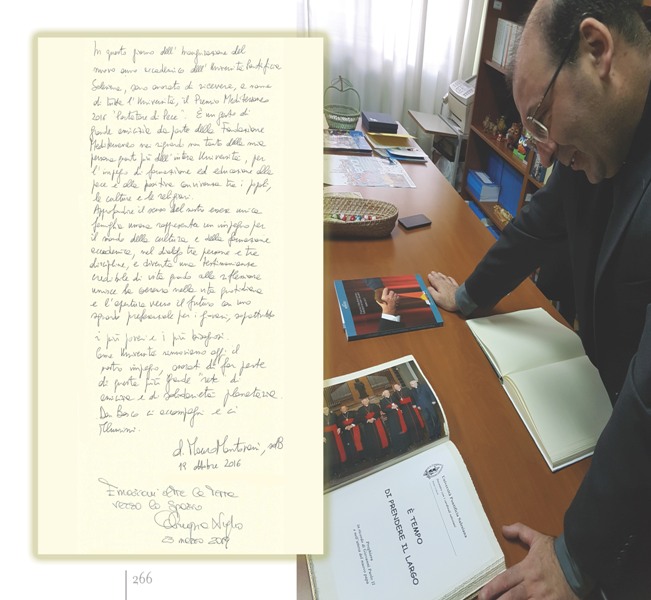 In questo giorno dell'Inaugurazione del
nuovo anno accademico dell'Università Pontificia
Salesiana, sono onorato di ricevere, a nome
di tutta l'Università, il Premio Mediterraneo
2016 "Portatore di Pace". È un gesto di
grande amicizia da parte della Fondazione
Mediterraneo nei riguardi non tanto della mia
persona quanto più dell'intera Università, per
l'impegno di formazione ed educazione alla
pace e alla positiva convivenza tra i popoli,
le culture e le religioni.
Approfondire il senso del nostro essere unica
famiglia umana rappresenta un impegno per
il mondo della cultura e della formazione
accademica, nel dialogo tra persone e tra
discipline, e diventa una testimonianza
credibile di vita quando alla riflessione
unisce la coerenza nella vita quotidiana
e l'apertura verso il futuro con uno
sguardo preferenziale per i giovani, soprattutto
i più poveri e i più bisognosi.
Come Università rinnoviamo oggi il
nostro impegno, onorati di far parte
di questa più grande "rete" di
amicizia e di solidarietà planetaria.
Don Bosco ci accompagni e ci
illumini.
d. Mauro Mantovani, sdB
19 ottobre 2016
Emozioni oltre la Terra
verso lo Spazio
23 marzo 2017
266
È TEMPO
DI PRENDERE IL LARGO